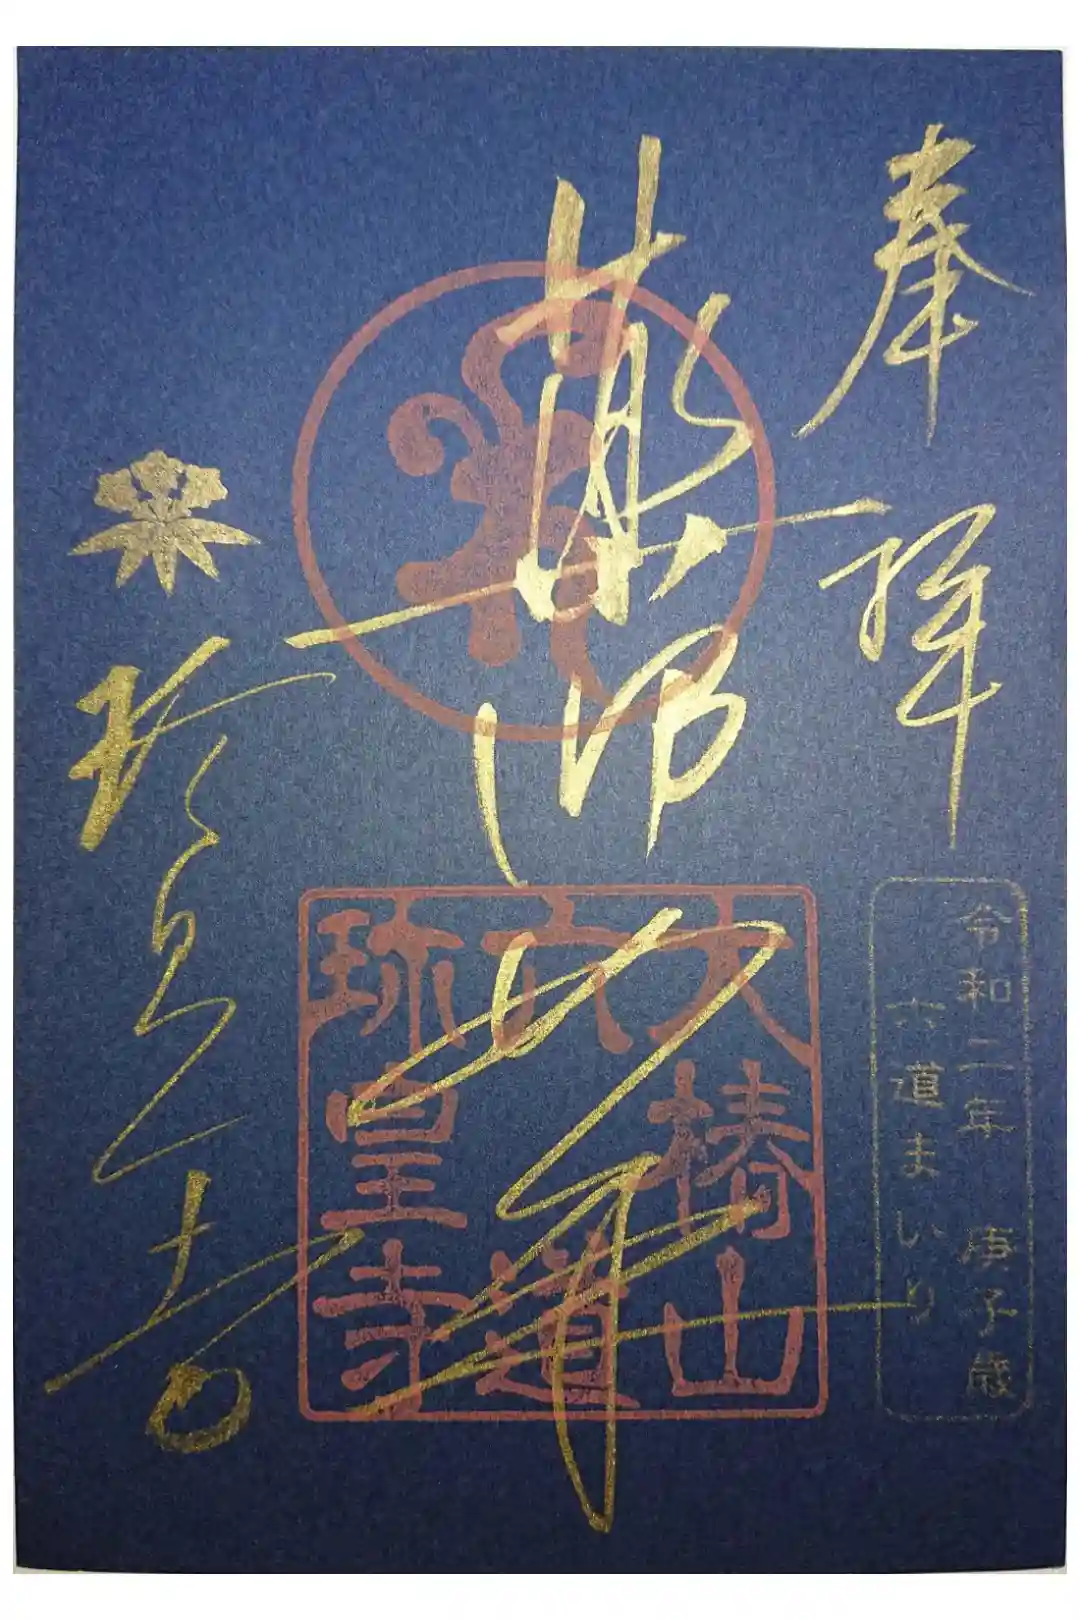 奉拝
令和二年 庚子歳
六道まいり
薬師如来
大椿山
六道
珍皇寺
珍皇寺